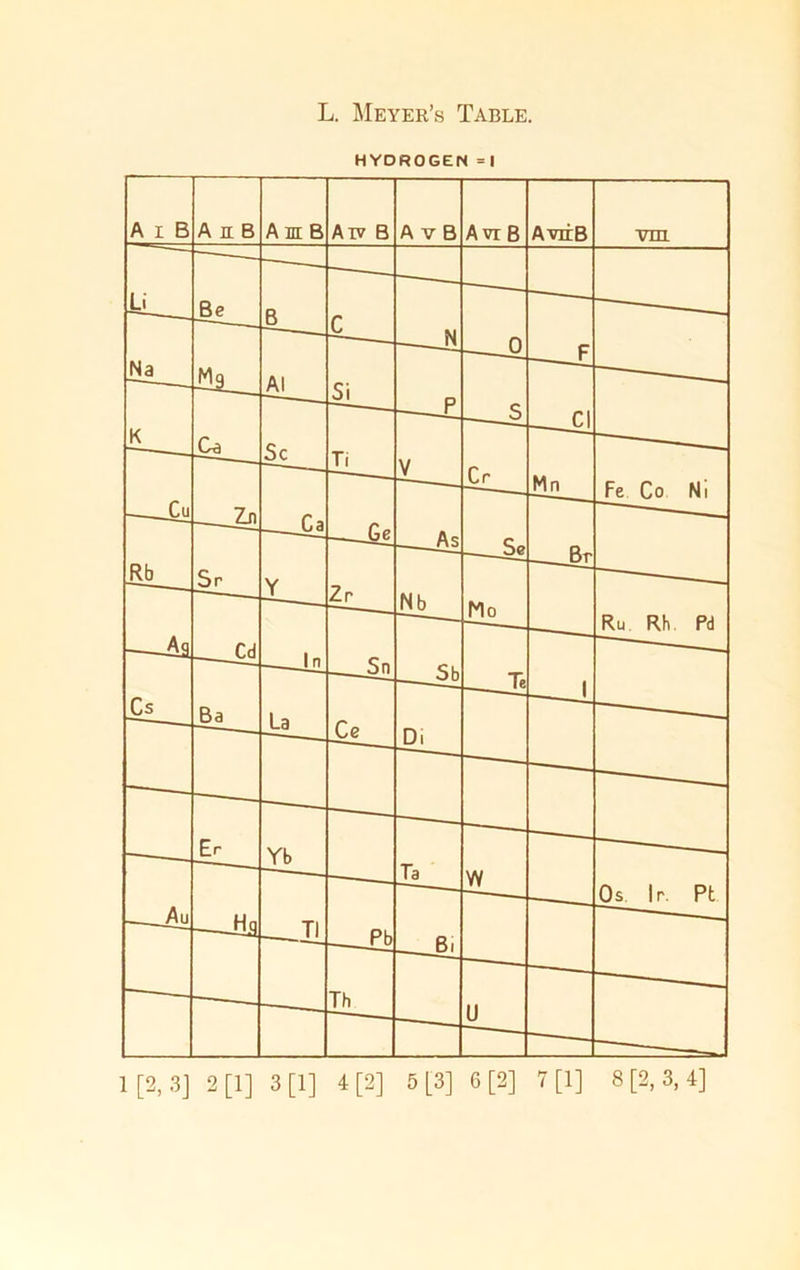 L. MEYER'S TABLE.
HYDROGEN = 1
A I B A II B A III B A IV B A V B A VI B A VII B VIII
Li Be B C N O F
Na Mg Al Si P S Cl
K Ca Sc Ti V Cr Mn Fe. Co. Ni
Cu Zn Ca Ge As Se Br
Rb Sr Y Zr Nb Mo Ru. Rh. Pd
Ag Cd In Sn Sb Te I
Cs Ba La Ce Di
Er Yb Ta W Os. Ir. Pt.
Au Hg Tl Pb Bi
Th U
1 [2, 3] 2 [1] 3 [1] 4 [2] 5 [3] 6 [2] 7 [1] 8 [2, 3, 4]